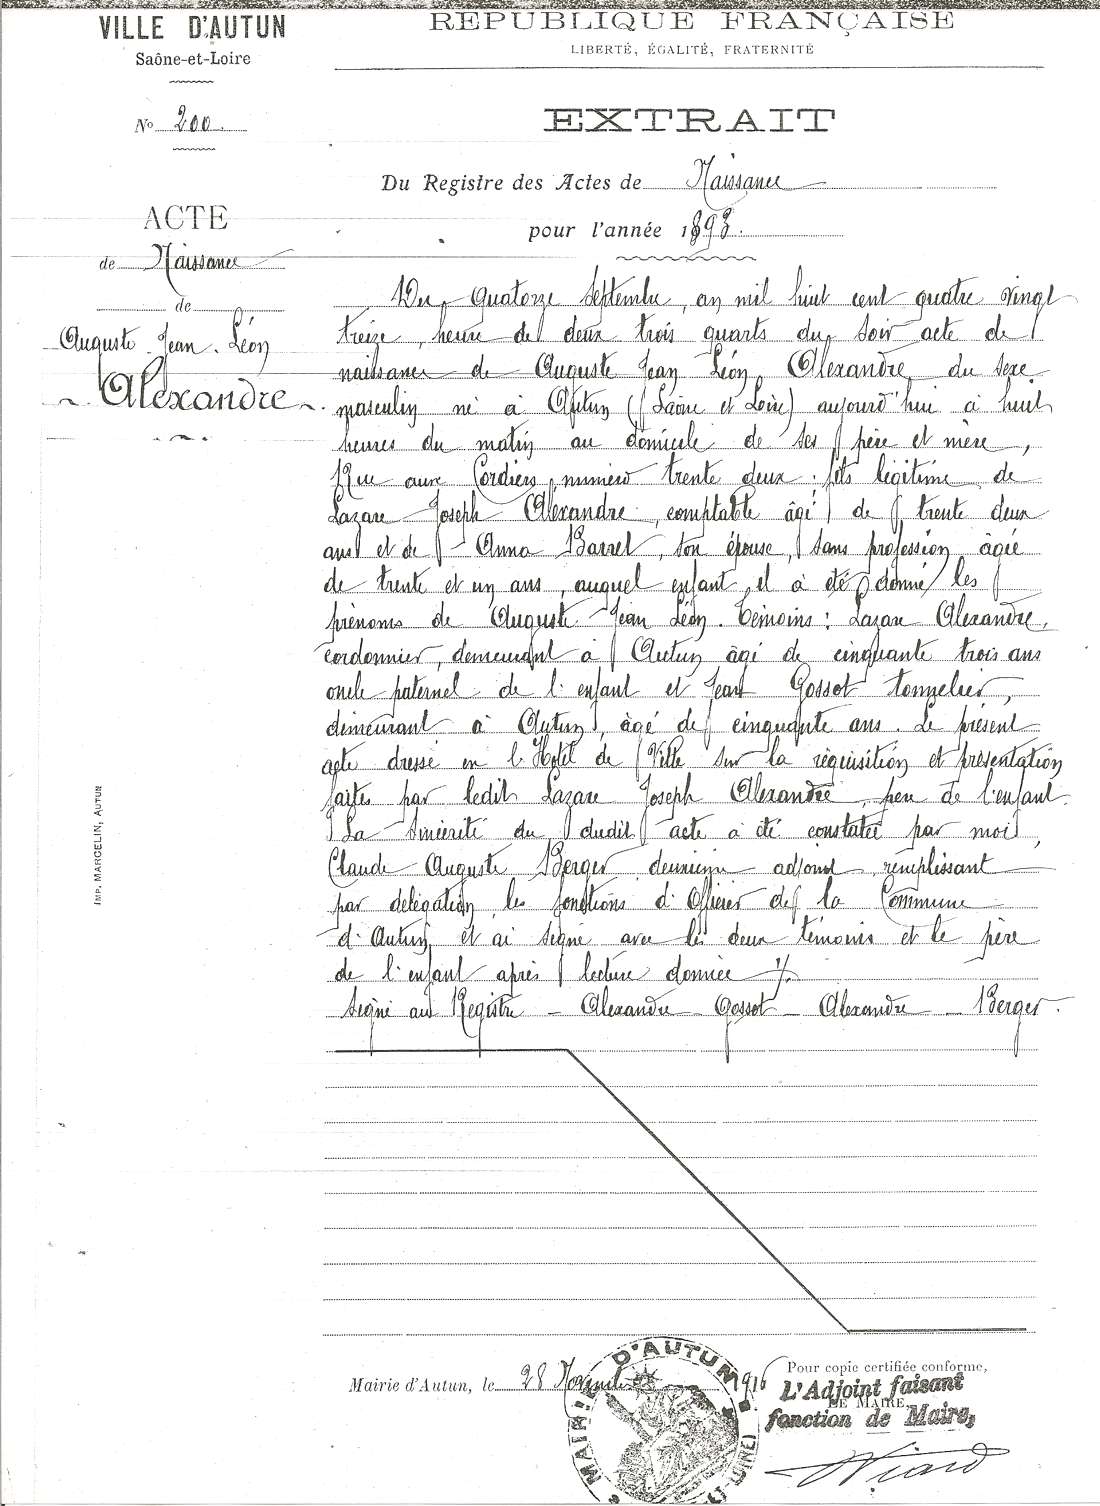 VILLE D'AUTUN
Saône-et-Loire
Nº 200
ACTE
de Naissance
de
Auguste Jean Léon
Alexandre
IMP. MARCELIN, AUTUN
RÉPUBLIQUE FRANÇAISE
LIBERTÉ, ÉGALITÉ, FRATERNITÉ
EXTRAIT
Du Registre des Actes de Naissance
pour l'année 1893.
Du quatorze Septembre, an mil huit cent quatre vingt
treize, heure de deux trois quarts du soir acte de
naissance de Auguste Jean Léon Alexandre, du sexe
masculin né à Autun (Saône et Loire) aujourd'hui à huit
heures du matin au domicile de ses père et mère,
Rue aux Cordiers, numéro trente deux; fils légitime de
Lazare Joseph Alexandre, comptable âgé de trente deux
ans et de Anna Barret, son épouse, sans profession âgée
de trente et un ans, auquel enfant il a été donné les
prénoms de Auguste Jean Léon. Témoins: Lazare Alexandre,
cordonnier, demeurant à Autun âgé de cinquante trois ans
oncle paternel de l'enfant et Jean Gossot tonnelier,
demeurant à Autun, âgé de cinquante ans. Le présent
acte dressé en l'Hôtel de Ville sur la réquisition et présentation
faites par ledit Lazare Joseph Alexandre, père de l'enfant.
La sincérité du dudit acte a été constatée par moi,
Claude Auguste Berger, deuxième adjoint, remplissant
par délégation, les fonctions d'Officier de la Commune
d'Autun, et ai signé avec les deux témoins et le père
de l'enfant après lecture donnée ./.
Signé au Registre - Alexandre - Gossot - Alexandre - Berger.
Mairie d'Autun, le 28 Novembre 1916
MAIRIE D'AUTUN
ET-LOIRE)
Pour copie certifiée conforme,
LE MAIRE,
L'Adjoint faisant
fonction de Maire,